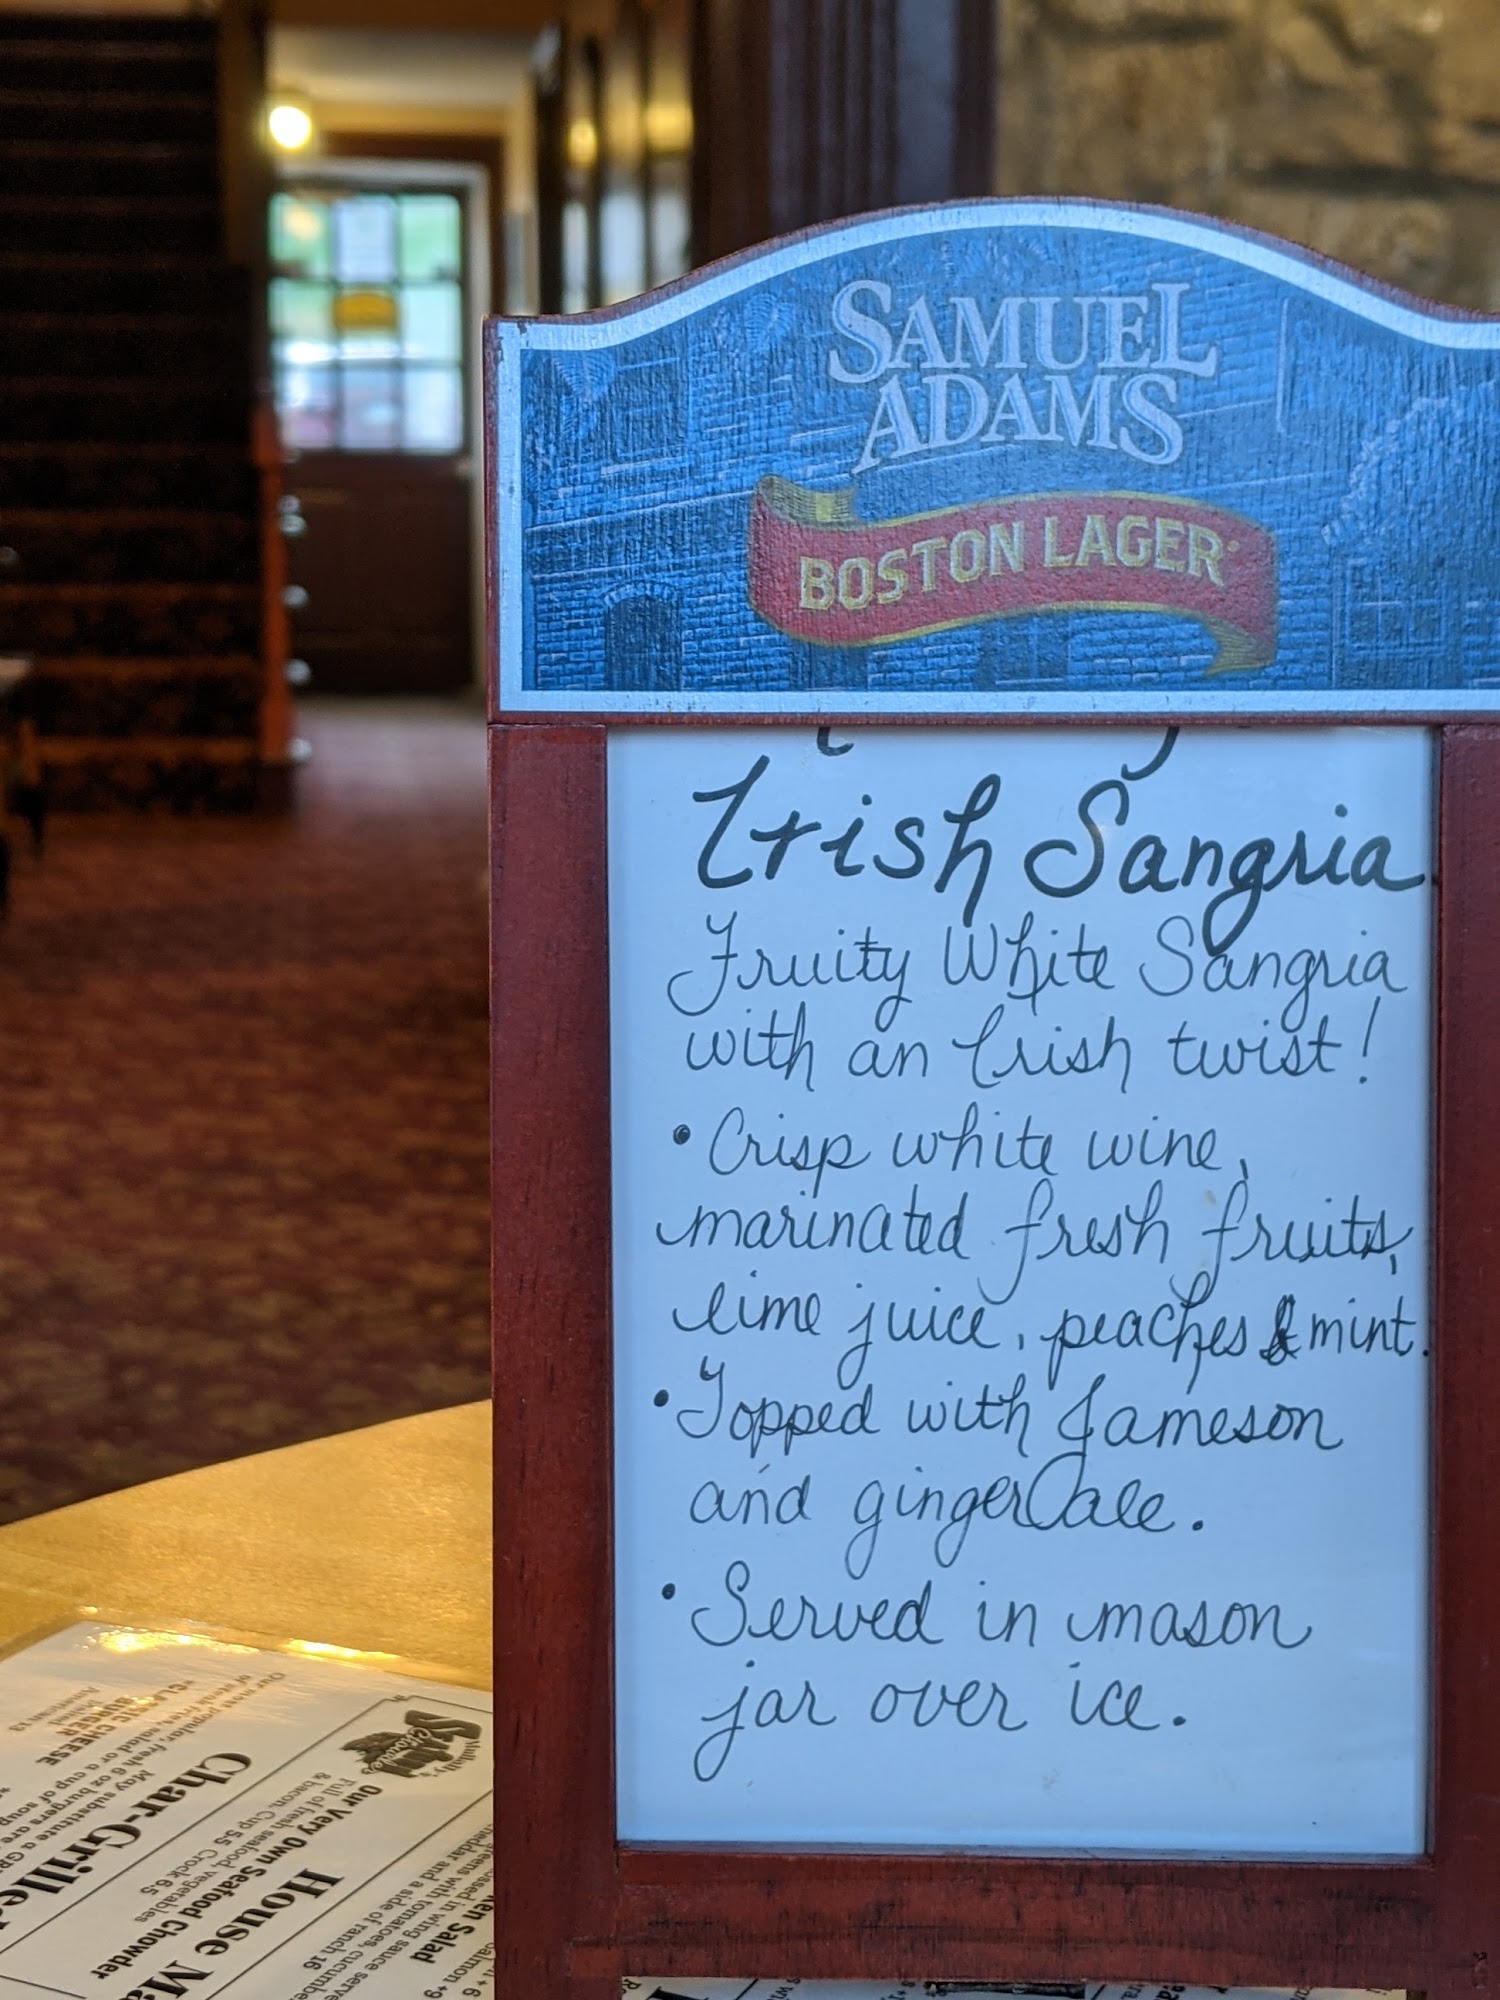 SAMUEL
ADAMS
BOSTON LAGER
Irish Sangria
Fruity White Sangria
with an Irish twist!
• Crisp white wine,
marinated fresh fruits,
lime juice, peaches & mint.
• Topped with Jameson
and ginger ale.
• Served in mason
jar over ice.
Char-Grille
Our most popular, fresh 6 oz burgers are
May substitute a
salad or a cup of soup
*CLASSIC CHEESE
BURGER
American 13
House Ma
Our Very Own Seafood Chowder
Full of fresh seafood, vegetables
& bacon. Cup 5.5 Crock 6.5
en Salad
tossed in wing sauce serve
tomatoes, cucumbe
and a side of ranch 16